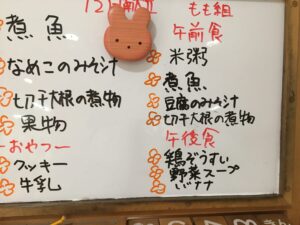 煮魚
なめこのみそ汁
切干大根の煮物
果物
おやつ
クッキー
牛乳
もも組
午前食
米粥
煮魚
豆腐のみそ汁
切干大根の煮物
午後食
鶏ぞうすい
野菜スープ
バナナ